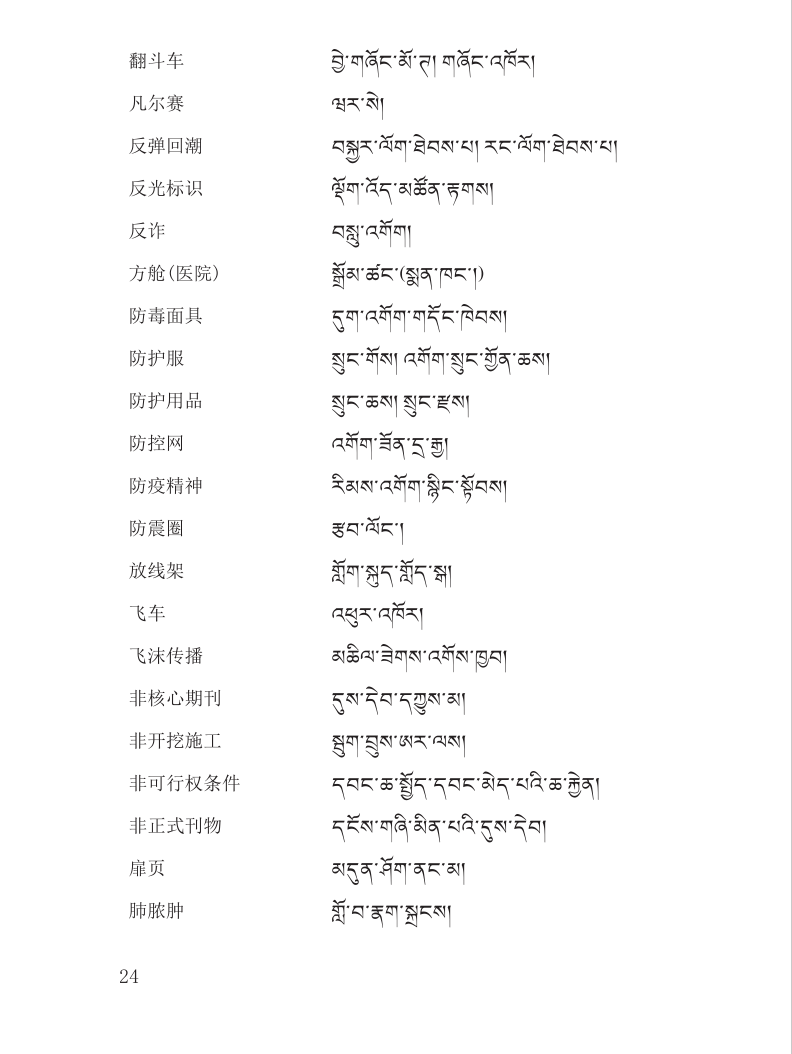 翻斗车 བྱེ་གཞོང་མོ་ཊ། གཞོང་འཁོར།
凡尔赛 ཝར་སེ།
反弹回潮 བསྐྱར་ལོག་ཐེབས་པ། རང་ལོག་ཐེབས་པ།
反光标识 ལྡོག་འོད་མཚོན་རྟགས།
反诈 བསླུ་འགོག།
方舱(医院) སྒྲོམ་ཚང་(སྨན་ཁང་།)
防毒面具 དུག་འགོག་གདོང་ཁེབས།
防护服 སྲུང་གོས། འགོག་སྲུང་གྱོན་ཆས།
防护用品 སྲུང་ཆས། སྲུང་རྫས།
防控网 འགོག་ཟོན་དྲ་རྒྱ།
防疫精神 རིམས་འགོག་སྙིང་སྟོབས།
防震圈 རྩབ་ལོང་།
放线架 གློག་སྐུད་གློད་སྒ།
飞车 འཕུར་འཁོར།
飞沫传播 མཆིལ་ཟེགས་འགོས་ཁྱབ།
非核心期刊 དུས་དེབ་དཀྱུས་མ།
非开挖施工 སྦུག་བྲུས་ཨར་ལས།
非可行权条件 དབང་ཆ་སྤྱོད་དབང་མེད་པའི་ཆ་རྐྱེན།
非正式刊物 དངོས་གཞི་མིན་པའི་དུས་དེབ།
扉页 མདུན་ཤོག་ནང་མ།
肺脓肿 གློ་བ་རྣག་སྐྲངས།
24